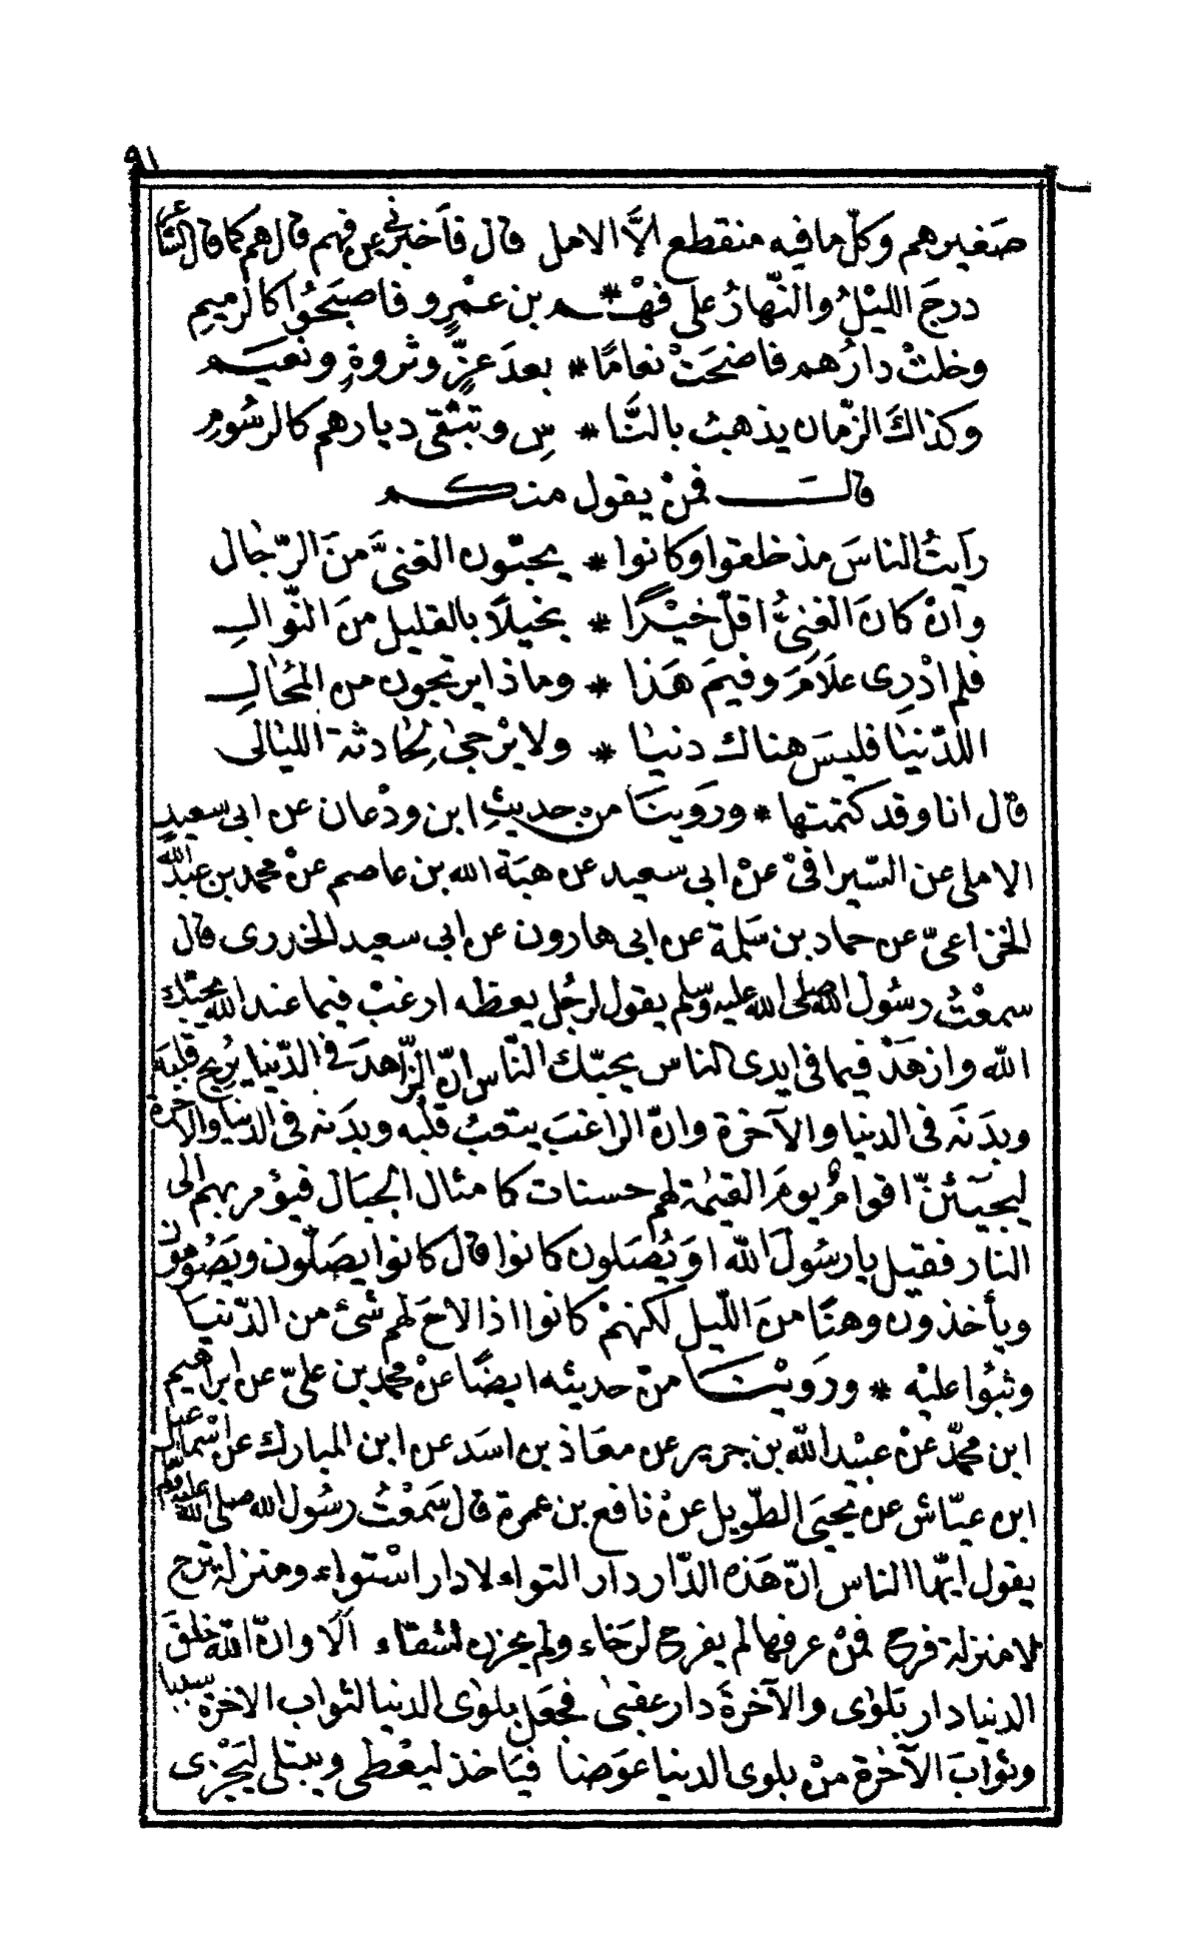 ٩١
صَغيرهم وكلّ ما فيه منقطع الاَّ الامل قال فاَخبرنى عن فهم قال هم كما قال الشّاعر
درجَ الليْلُ والنّهارُ على فهْـم بن عمْرٍو فاصبَحُوا كالرميمِ
وخلتْ دارُهم فاضحَتْ نعامًا * بعدَ عزٍّ وثروةٍ ونعيَم
وكذاكَ الزّمان يذهبُ بالنَّا * سِ وتبْقى ديارهم كالرسُومِ
قالَت فمنْ يقول منكم
رايتُ الناسَ مذ خلقوا وكانوا * يحبّون الغنىَّ منَ الرّجال
وانْ كانَ الغنىُّ اقلّ خيْرًا * بخيلًا بالقليل منَ النّوالِ
فلم ادْرِى علَامَ وفيمَ هَذا * وماذا يرتجون من المُحَالِ
اللدّنيا فليسَ هناك دنيا * ولا يرْجىٰ لِحادثة الليالى
قال انا وقد كتمتها * ورَوينَا من حديثِ ابن ودْعان عن ابى سعيدٍ
الاملى عن السّيرافىْ عنْ ابى سعيد عن هبَة الله بن عاصم عنْ محمد بن عبد الله
الخزاعىّ عن حماد بن سَلمة عن ابى هارون عن ابى سعيد الخدرى قال
سمعْتُ رسُول الله صلى الله عليه وسلم يقول لرجُل يعظه ارغبْ فيما عند الله يحبّك
الله وازهَدْ فيما فى ايدى الناس يحبّك النّاس انّ الزّاهدَ فى الدّنيا يُريح قلبَه
وبدَنَه فى الدنيا والآخرة وانّ الراغبَ يتعبُ قلبه وبدَنه فى الدنيا والآخرة
ليجيَئنّ اقوامٌ يومَ القيٰمة لهم حسنات كامثال الجبَال فيؤمر بهم الى
النار فقيل يا رسُولَ الله اوَ يُصَلون كانوا قال كانوا يصَلّون ويَصُومون
ويأخذون وهنًا منَ اللّيل لكنهمْ كانوا اذا لاحَ لهم شئ من الدّنيَا
وثبُوا عليْه * ورَويْنَا منْ حديثه ايضًا عنْ محمد بن علىّ عن ابراهيم
ابن محمّد عنْ عبيْد الله بن جرير عن معَاذ بن اسَد عن ابن المبارك عن اسْماعيل
ابن عيّاش عن يحيَى الطّويل عنْ نافع بن عمرة قال سَمعْتُ رسُول الله صلى الله عليه وسلم
يقول ايّها الناس انّ هَذه الدّار دار التواء لا دار اسْتواء ومنزلة ترح
لا منزلة فرح فمنْ عرفها لم يفرح لرَخاء ولم يحزن لشقاء اَلَا وانّ الله خلقَ
الدنيا دار بَلوٰى والآخرةَ دار عقبىٰ فجعَل بلوٰى الدنيا لثواب الآخرة سببا
وثوابَ الآخرة منْ بلوى الدنيا عوَضا فيَاخذ ليعْطى ويبتلى ليَجْزى